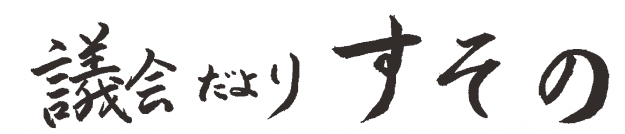 議会だより すその